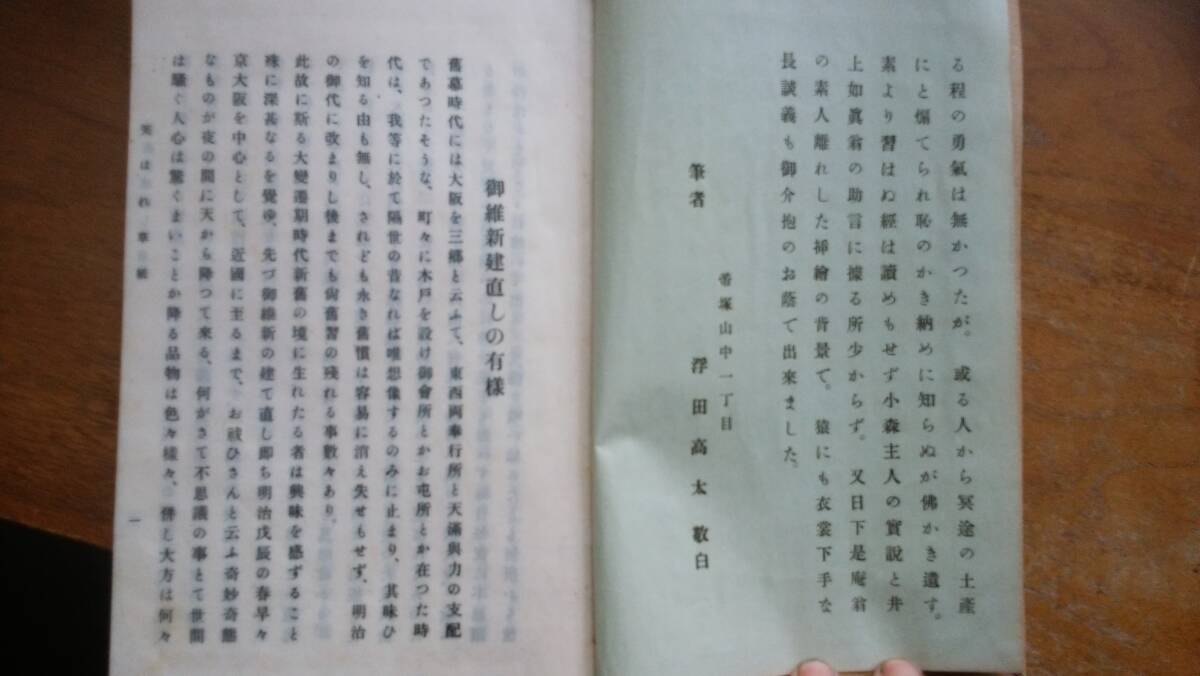 る程の勇氣は無かつたが。或る人から冥途の土產
にと煽てられ恥のかき納めに知らぬが佛かき遺す。
素より習はぬ經は讀めもせず小森主人の實說と井
上如眞翁の助言に據る所少からず。又日下是庵翁
の素人離れした揷繪の背景で。猿にも衣裳下手な
長談義も御介抱のお蔭で出來ました。
帝塚山中一丁目
筆者 浮田高太 敬白
御維新建直しの有樣
舊幕時代には大阪を三鄕と云ふて、東西兩奉行所と天滿與力の支配
であつたそうな、町々に木戶を設け御會所とかお屯所とか在つた時
代は、我等に於て隔世の昔なれば唯想像するのみに止まり、其味ひ
を知る由も無し、されども永き舊慣は容易に消え失せもせず、明治
の御代に改まりし後までも尙舊習の殘れる事數々あり。
此故に斯る大變遷期時代新舊の境に生れたる者は興味を感ずること
殊に深甚なるを覺ゆ、先づ御維新の建て直し卽ち明治戊辰の春早々
京大阪を中心として、近國に至るまで、お祓ひさんと云ふ奇妙奇態
なものが夜の間に天から降つて來る、何がさて不思議の事とて世間
は騷ぐ人心は驚くまいことか降る品物は色々樣々、倂し大方は何々
一